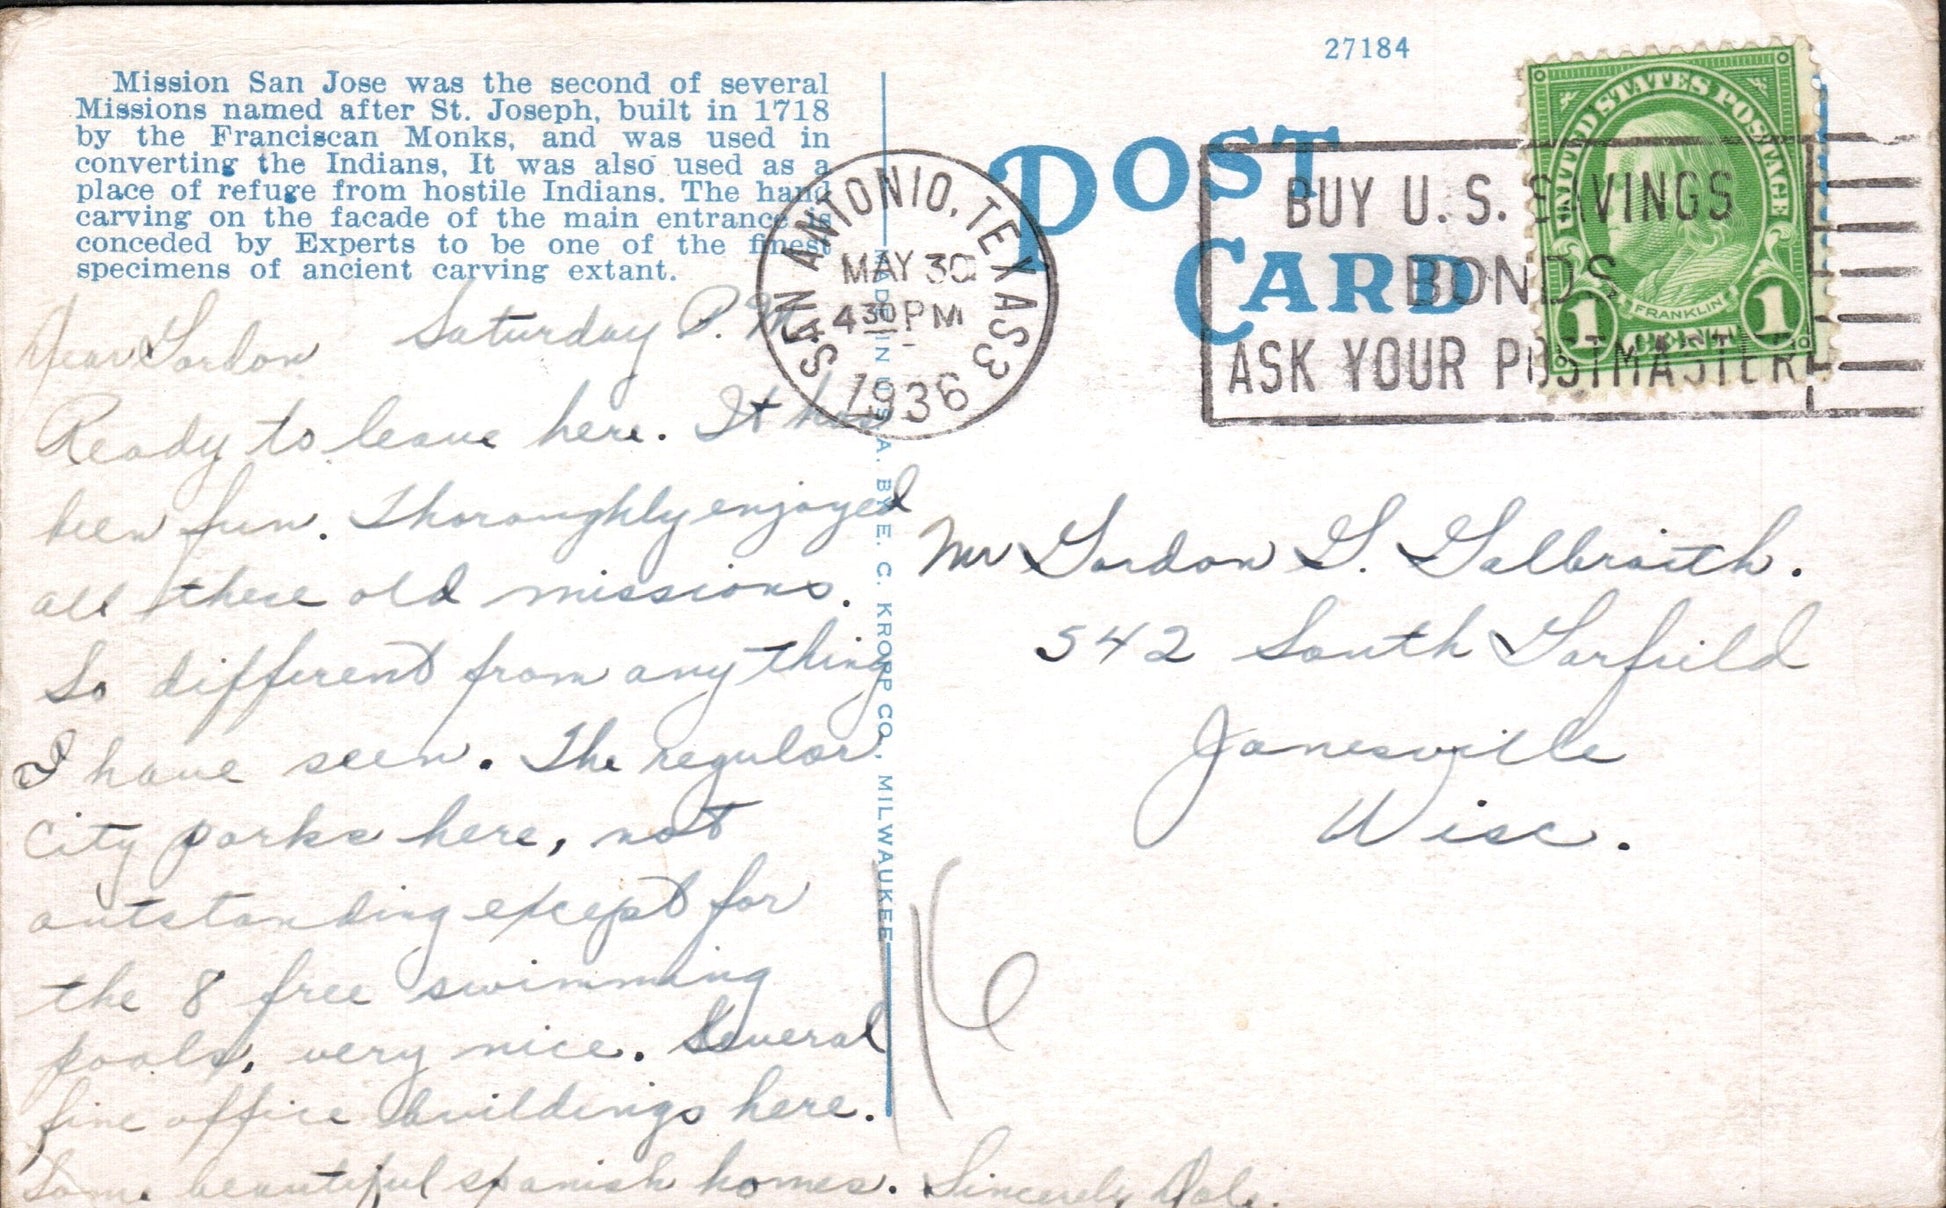 27184
Mission San Jose was the second of several
Missions named after St. Joseph, built in 1718
by the Franciscan Monks, and was used in
converting the Indians, It was also used as a
place of refuge from hostile Indians. The hand
carving on the facade of the main entrance is
conceded by Experts to be one of the finest
specimens of ancient carving extant.
POST
CARD
SAN ANTONIO, TEXAS 3
MAY 30
430 PM
1936
BUY U. S. SAVINGS
BONDS
ASK YOUR POSTMASTER
UNITED STATES POSTAGE
FRANKLIN
1 CENT 1
MADE IN U.S.A. BY E. C. KROPP CO., MILWAUKEE
Saturday P. M.
Dear Gordon
Ready to leave here. It has
been fun. Thoroughly enjoyed
all these old missions.
So different from any thing
I have seen. The regular
City parks here, not
outstanding except for
the 8 free swimming
pools, very nice. Several
fine office buildings here.
Some beautiful spanish homes. Sincerely, Dale.
Mr Gordon G. Galbraith.
542 South Garfield
Janesville
Wisc.
16